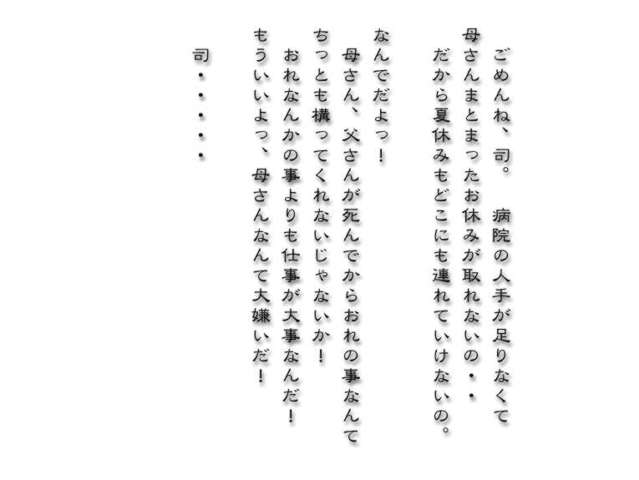 ごめんね、司。　病院の人手が足りなくて
母さんまとまったお休みが取れないの・・
だから夏休みもどこにも連れていけないの。
なんでだよっ！
母さん、父さんが死んでからおれの事なんて
ちっとも構ってくれないじゃないか！
おれなんかの事よりも仕事が大事なんだ！
もういいよっ、母さんなんて大嫌いだ！
司・・・・・